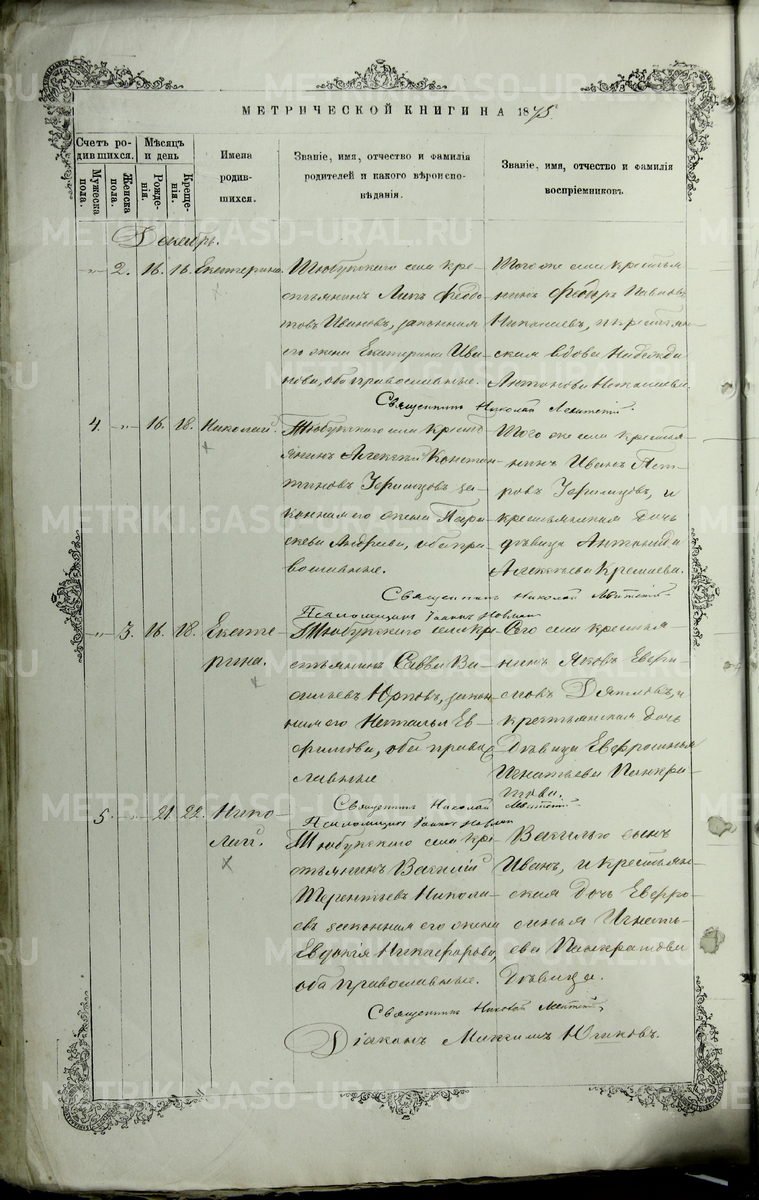 МЕТРИЧЕСКОЙ КНИГИ НА 1875
Счетъ родившихся.
Мужеска пола.
Женска пола.
Мѣсяцъ и день
Рожденія.
Крещенія.
Имена родившихся.
Званіе, имя, отчество и фамилія родителей и какого вѣроисповѣданія.
Званіе, имя, отчество и фамилія воспріемниковъ.
Декабрь.
2. 16. 16. Екатерина.
Тюбукскаго села кре-
стьянинъ
Ивановъ, законная
его жена Екатерина Ива-
нова, оба православные.
Того же села крестья-
нинъ Федоръ Иванов
Николаевъ, и крестьян-
ская вдова Надежда
Антонова
Священникъ Николай
4. 16. 18. Николай.
Тюбукскаго села крест
янинъ Алексѣй Констан
тиновъ за-
конная его жена Пара-
скева Андреева, оба пра-
вославные.
Того же села крестья-
нинъ Иванъ Пет-
ровъ и
крестьянская дочь
дѣвица Антонида
Алексѣева
Священникъ Николай
Псаломщикъ
3. 16. 18. Екате-
рина.
Тюбукскаго села кре-
стьянинъ Савва Ва-
сильевъ закон
ная его Наталья Ев-
фимова, оба право
славные
Того села крестья-
нинъ Яковъ
Дятловъ, и
крестьянская дочь
дѣвица Евфросинья
Игнатьева Панкра-
това.
Священникъ Николай
Псаломщикъ
5. 21. 22. Нико-
лай.
Тюбукскаго села кре
стьянинъ Василій
Терентьевъ Никола-
евъ законная его жена
Евдокія Никифорова,
оба православные.
сынъ
Иванъ, и крестьян-
ская дочь Евфро-
синья Игнать-
ева Панкратова
дѣвица.
Священникъ Николай
Діаконъ Максимъ
METRIKI.GASO-URAL.RU